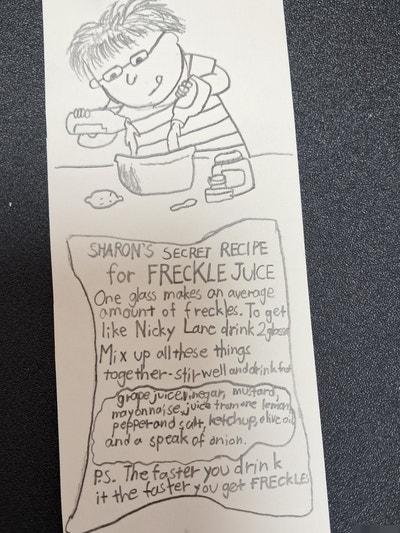 SHARON'S SECRET RECIPE
for FRECKLE JUICE
One glass makes an average
amount of freckles. To get
like Nicky Lane drink 2 glasses
Mix up all these things
together-stir well and drink fast
grape juice, vinegar, mustard,
mayonnaise, juice from one lemon,
pepper and salt, ketchup, olive oil
and a speak of onion.
P.S. The faster you drink
it the faster you get FRECKLES